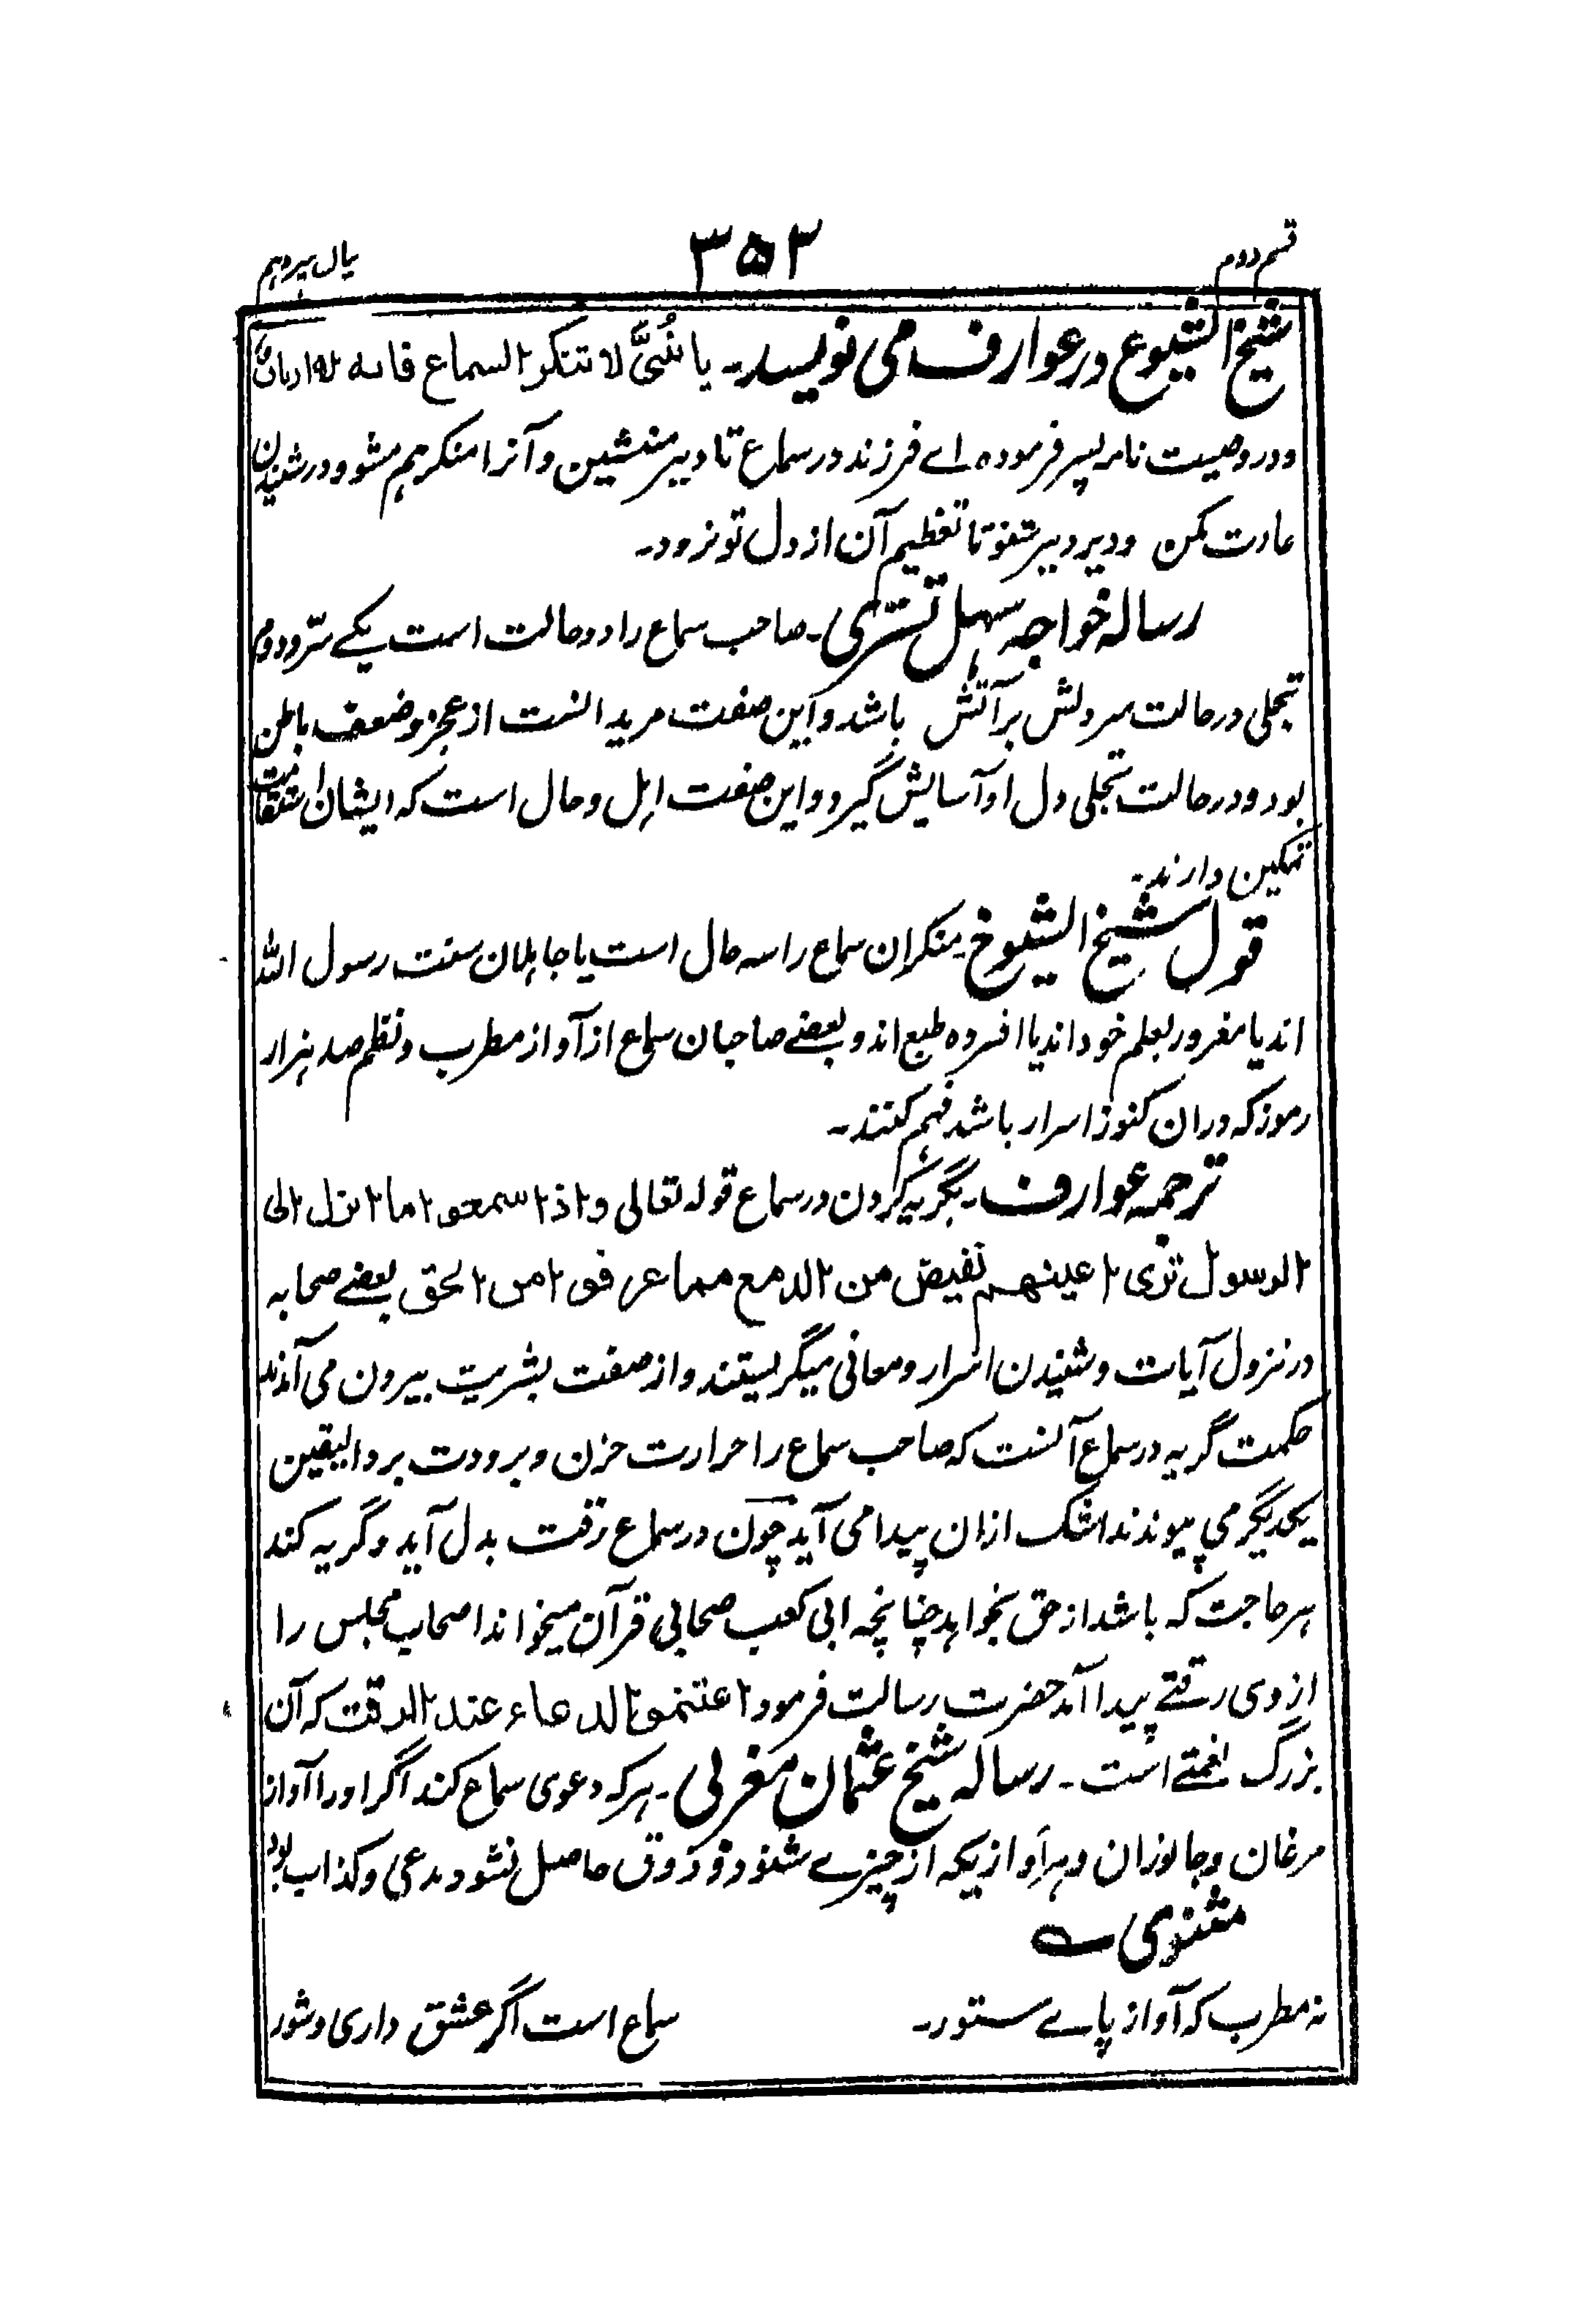 قسم دوم
۳۵۳
شیخ الشیوع در عوارف می نویسد۔ یا بنُیَّ لا تنکر السماع فانه له ارباب
و در وصیت نامه پسر فرموده اے فرزند در سماع تا دیر منشین و آنرا منکر هم مشو و در شنیدن
عادت مکن و دیر دیر شنو تا تعظیم آن از دل تو نرود۔
رساله خواجه سهل تستری۔ صاحب سماع را دو حالت است یکے سرّ و دوم
تجلی در حالت سر دلش بر آتش باشد و این صفت مریدانست از عجز و ضعف باطن
بود و در حالت تجلی دل او آسایش گیرد و این صفت اهل و حال است که ایشان استقامت
تمکین دارند۔
قول شیخ الشیوخ۔ منکران سماع را سه حال است یا جاهلان سنت رسول الله
اند یا مغرور بعلم خود اند یا افسرده طبع اند و بعضے صاحبان سماع از آواز مطرب و نظم صد هزار
رموز که دران کنوز اسرار باشد فهم کنند۔
ترجمه عوارف۔ بگریه کردن در سماع قوله تعالی و اذا سمعوا ما انزل الی
الرسول تری اعینهم تفیض من الدمع مما عرفوا من الحق بعضے صحابه
در نزول آیات و شنیدن اسرار و معانی میگریستند و از صفت بشریت بیرون می آمدند
حکمت گریه در سماع آنست که صاحب سماع را حرارت حزن و برودت برد الیقین
یکدیگر می پیوندند اشک ازان پیدا می آید چون در سماع رقت بدل آید و گریه کند
هر حاجت که باشد از حق بخواهد چنانچه ابی کعب صحابی قرآن میخواند اصحاب مجلس را
از وی رقتے پیدا آمد حضرت رسالت فرمود اغتنموا الدعاء عند الرقت که آن
بزرگ نعمتے است۔ رساله شیخ عثمان مغربی۔ هر که دعوی سماع کند اگر او را آواز
مرغان و جانوران و هر آوازیکه از چیزے شنود و ذوق حاصل نشود مدعی و کذاب بود
مثنوی
نه مطرب که آواز پاے ستور۔ سماع است اگر عشق داری و شور